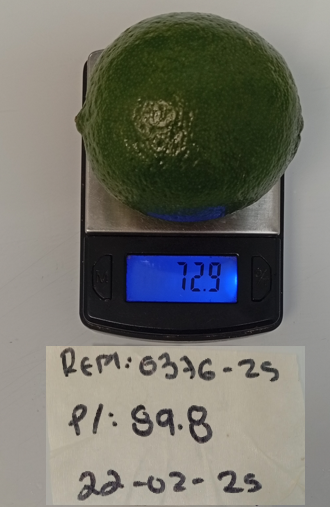 72.9
REM: 0376-25
P/: 89.8
22-02-25